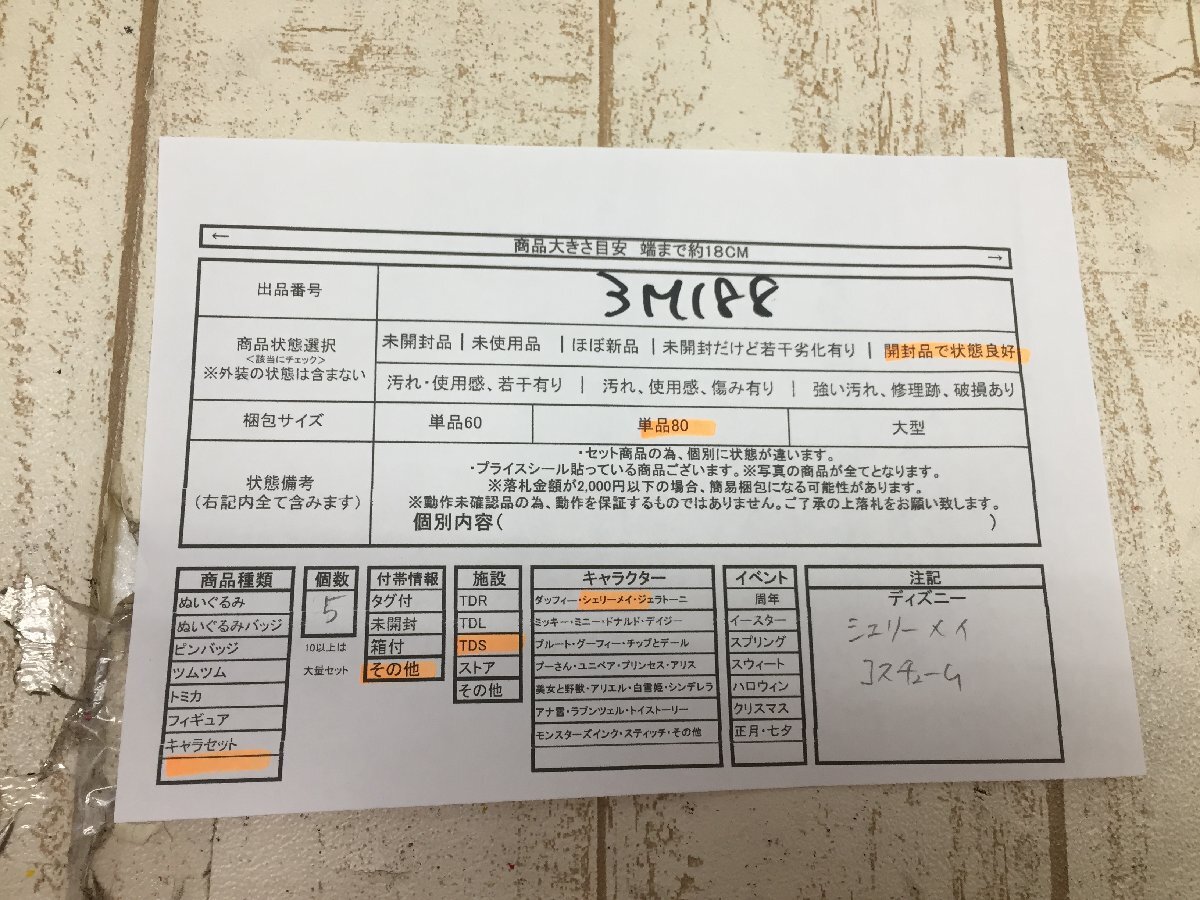 ← 商品大きさ目安 端まで約18CM →
出品番号 3M188
商品状態選択
<該当にチェック>
※外装の状態は含まない
未開封品 | 未使用品 | ほぼ新品 | 未開封だけど若干劣化有り | 開封品で状態良好
汚れ・使用感、若干有り | 汚れ、使用感、傷み有り | 強い汚れ、修理跡、破損あり
梱包サイズ 単品60 単品80 大型
状態備考
(右記内全て含みます)
・セット商品の為、個別に状態が違います。
・プライスシール貼っている商品ございます。※写真の商品が全てとなります。
※落札金額が2,000円以下の場合、簡易梱包になる可能性があります。
※動作未確認品の為、動作を保証するものではありません。ご了承の上落札をお願い致します。
個別内容( )
商品種類
ぬいぐるみ
ぬいぐるみバッジ
ピンバッジ
ツムツム
トミカ
フィギュア
キャラセット
個数
5
10以上は
大量セット
付帯情報
タグ付
未開封
箱付
その他
施設
TDR
TDL
TDS
ストア
その他
キャラクター
ダッフィー・シェリーメイ・ジェラトーニ
ミッキー・ミニー・ドナルド・デイジー
プルート・グーフィー・チップとデール
プーさん・ユニベア・プリンセス・アリス
美女と野獣・アリエル・白雪姫・シンデレラ
アナ雪・ラプンツェル・トイストーリー
モンスターズインク・スティッチ・その他
イベント
周年
イースター
スプリング
スウィート
ハロウィン
クリスマス
正月・七夕
注記
ディズニー
シェリーメイ
コスチューム